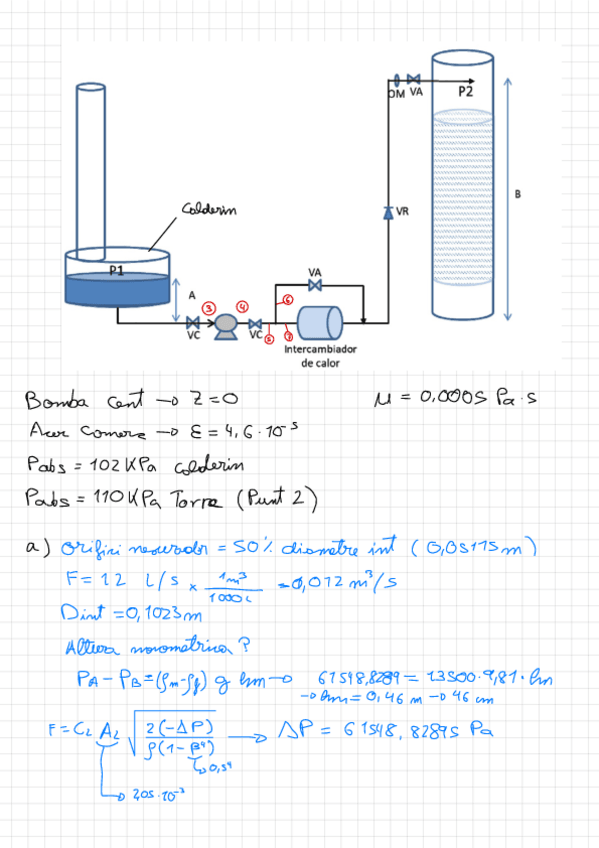 P2
OM VA
B
VR
Calderin
P1
VA
A
3
4
6
VC
VC
5
7
Intercambiador
de calor
Bomba Cent → Z=0
μ = 0,0005 Pa·s
Acer Comerc → ε = 4,6·10⁻⁵
Pabs = 102 KPa calderin
Pabs = 110 KPa Torre (Punt 2)
a) orifici mesurador = 50% diametre int (0,05115m)
F = 12 L/s × 1m³/1000L = 0,012 m³/s
Dint = 0,1023m
Altura manometrica?
PA - PB = (ρm-ρf) g hm → 61548,8289 = 13500·9,81·hm
→ hm = 0,46 m → 46 cm
F = C₂ A₂ √(2(-ΔP)/ρ(1-β⁴)) → ΔP = 61548,82895 Pa
→ 0,5⁴
→ 2,05·10⁻³